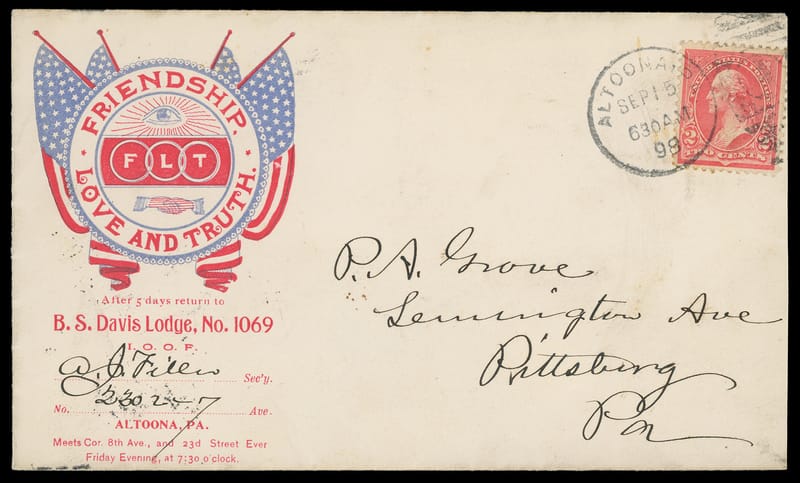 FRIENDSHIP.
F L T
LOVE AND TRUTH.
After 5 days return to
B. S. Davis Lodge, No. 1069
I. O. O. F.
A. J. Sec'y.
No. 2302-7 Ave.
ALTOONA, PA.
Meets Cor. 8th Ave., and 23d Street Ever
Friday Evening, at 7:30 o'clock.
ALTOONA
SEP 15
630AM
98
2 TWO CENTS 2
P. A. Grove
Lemington Ave
Pittsburg
Pa